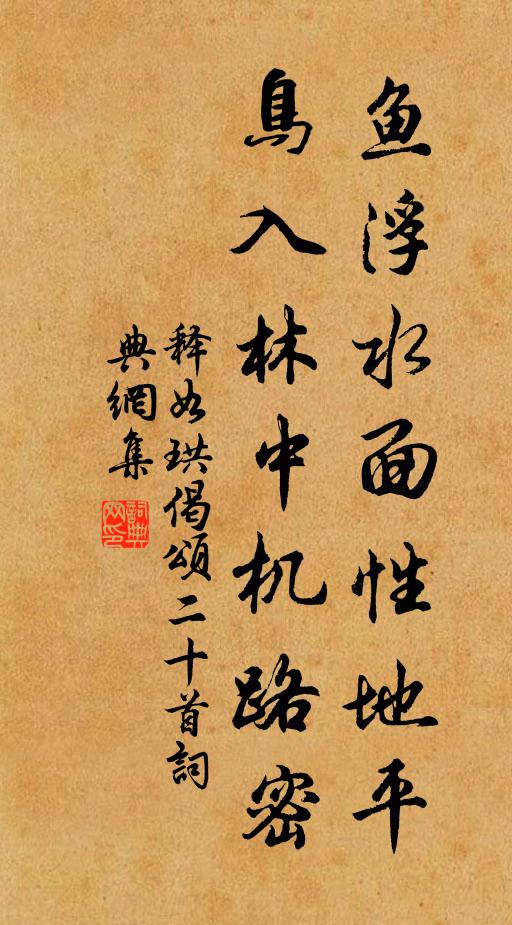 鱼浮水面性地平
鳥入林中机路密
释如珙偈颂二十首詞
典網集
詞典
网印